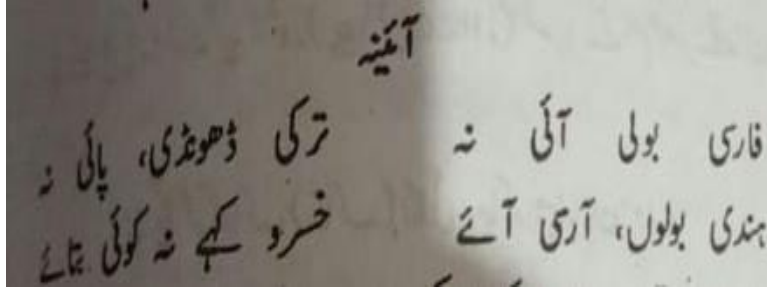 آئینہ
فارسی بولی آئی نہ ترکی ڈھونڈی، پائی نہ
ہندی بولوں، آرسی آئے خسرو کہے نہ کوئی بتائے